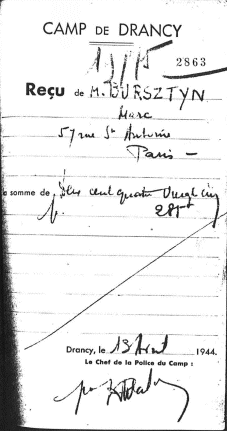 CAMP DE DRANCY
2863
Reçu de M. BURSZTYN
Marc
57 rue St Antoine
Paris –
a somme de cent quatre vingt cinq
285
Drancy, le 13 1944.
Le Chef de la Police du Camp :